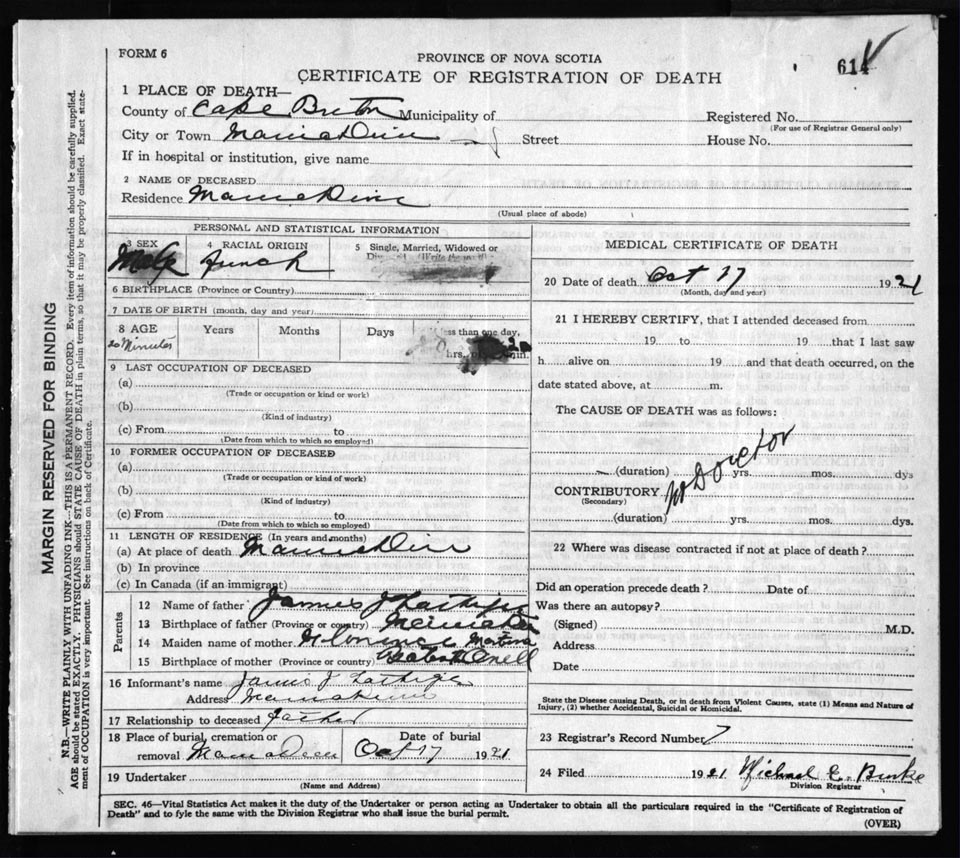 FORM 6
PROVINCE OF NOVA SCOTIA
614
CERTIFICATE OF REGISTRATION OF DEATH
1 PLACE OF DEATH—
County of Cape Breton Municipality of Registered No.
(For use of Registrar General only)
City or Town Street House No.
If in hospital or institution, give name
2 NAME OF DECEASED
Residence
(Usual place of abode)
PERSONAL AND STATISTICAL INFORMATION
3 SEX 4 RACIAL ORIGIN 5 Single, Married, Widowed or
Male French
6 BIRTHPLACE (Province or Country)
7 DATE OF BIRTH (month, day and year)
8 AGE Years Months Days less than one day,
20 Minutes hrs. min.
9 LAST OCCUPATION OF DECEASED
(a)
(Trade or occupation or kind or work)
(b)
(Kind of industry)
(c) From to
(Date from which to which so employed)
10 FORMER OCCUPATION OF DECEASED
(a)
(Trade or occupation or kind of work)
(b)
(Kind of industry)
(c) From to
(Date from which to which so employed)
11 LENGTH OF RESIDENCE (In years and months)
(a) At place of death
(b) In province
(c) In Canada (if an immigrant)
Parents
12 Name of father James J
13 Birthplace of father (Province or country)
14 Maiden name of mother Florence
15 Birthplace of mother (Province or country)
16 Informant's name James J
Address
17 Relationship to deceased Father
18 Place of burial, cremation or Date of burial
removal Oct 17 1921
19 Undertaker
(Name and Address)
MEDICAL CERTIFICATE OF DEATH
20 Date of death Oct 17 1921
(Month, day and year)
21 I HEREBY CERTIFY, that I attended deceased from
19 to 19 that I last saw
h alive on 19 and that death occurred, on the
date stated above, at m.
The CAUSE OF DEATH was as follows:
No Doctor
(duration) yrs. mos. dys
CONTRIBUTORY
(Secondary)
(duration) yrs. mos. dys.
22 Where was disease contracted if not at place of death?
Did an operation precede death? Date of
Was there an autopsy?
(Signed) M.D.
Address
Date
State the Disease causing Death, or in death from Violent Causes, state (1) Means and Nature of
Injury, (2) whether Accidental, Suicidal or Homicidal.
23 Registrar's Record Number 7
24 Filed 1921 Michael E. Burke
Division Registrar
SEC. 46—Vital Statistics Act makes it the duty of the Undertaker or person acting as Undertaker to obtain all the particulars required in the "Certificate of Registration of
Death" and to fyle the same with the Division Registrar who shall issue the burial permit.
(OVER)
MARGIN RESERVED FOR BINDING
N.B.—WRITE PLAINLY WITH UNFADING INK—THIS IS A PERMANENT RECORD. Every item of information should be carefully supplied.
AGE should be stated EXACTLY. PHYSICIANS should STATE CAUSE OF DEATH in plain terms, so that it may be properly classified. Exact state-
ment of OCCUPATION is very important. See instructions on back of Certificate.